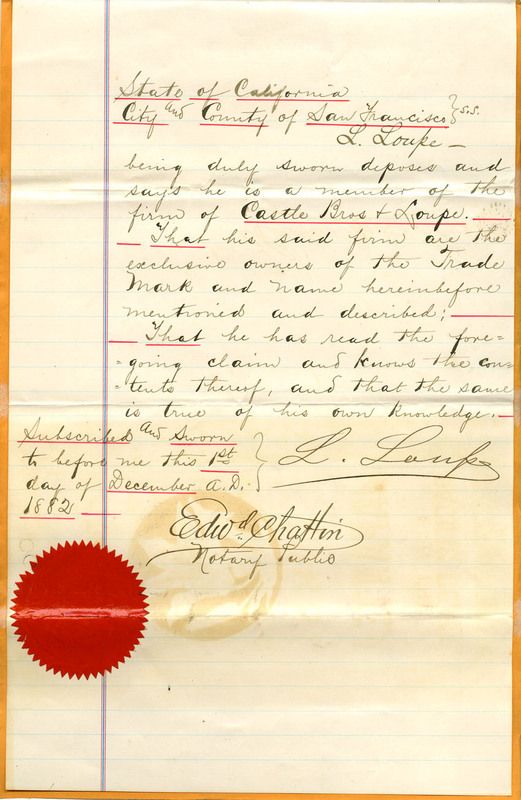 State of California
City and County of San Francisco } s.s.
L. Loupe —
being duly sworn deposes and
says he is a member of the
firm of Castle Bros & Loupe. —
— That his said firm are the
exclusive owners of the Trade
Mark and name hereinbefore
mentioned and described; —
— That he has read the fore=
=going claim and knows the con=
=tents thereof, and that the same
is true of his own knowledge. —
Subscribed and Sworn
to before me this 1st
day of December A.D.
1882 —
L. Loupe
Edwd. Chattin
Notary Public